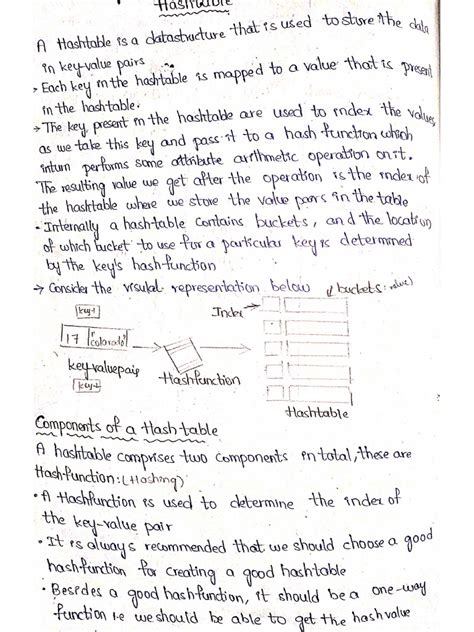 Hashtable
A Hashtable is a datastructure that is used to store the data
in key-value pairs
> Each key in the hashtable is mapped to a value that is present
in the hashtable.
→ The key present in the hashtable are used to index the values
as we take this key and pass it to a hash function which
inturn performs some attribute arithmetic operation on it.
The resulting value we get after the operation is the index of
the hashtable where we store the value pairs in the table
• Internally a hashtable contains buckets, and the location
of which bucket to use for a particular key is determined
by the key's hash-function
→ Consider the visual representation below
(buckets: value)
key1
Index
17 colorado
key-value pair
Hashfunction
Hashtable
Components of a Hash table
A hashtable comprises two components in total, these are
Hash-function: (Hashing)
• A Hashfunction is used to determine the index of
the key-value pair
• It is always recommended that we should choose a good
hashfunction for creating a good hashtable
• Besides a good hashfunction, it should be a one-way
function i.e we should be able to get the hashvalue